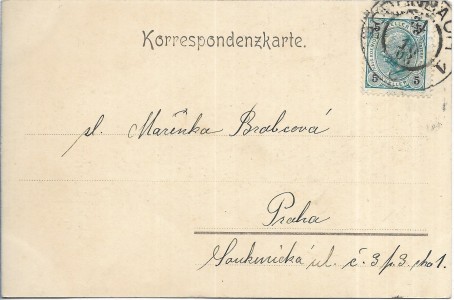 Korrespondenzkarte.
5 5
sl. Mařenka Brabcová
Praha
Soukenická ul. č. 3 p. 3.